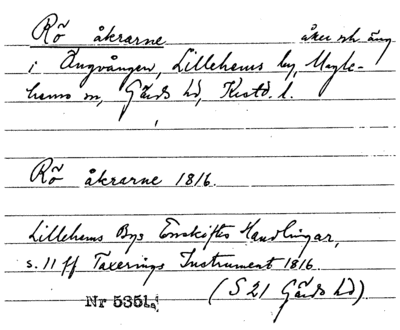 Rö åkrarne åker och äng
i Ängvången, Lillehems by, Magle-
hems sn, Gärds hd, Kristd. l.
Rö åkrarne 1816.
Lillehems Bys Enskiftes Handlingar,
s. 11 ff Taxerings Instrument 1816
(S 21 Gärds hd)
Nr 5351a